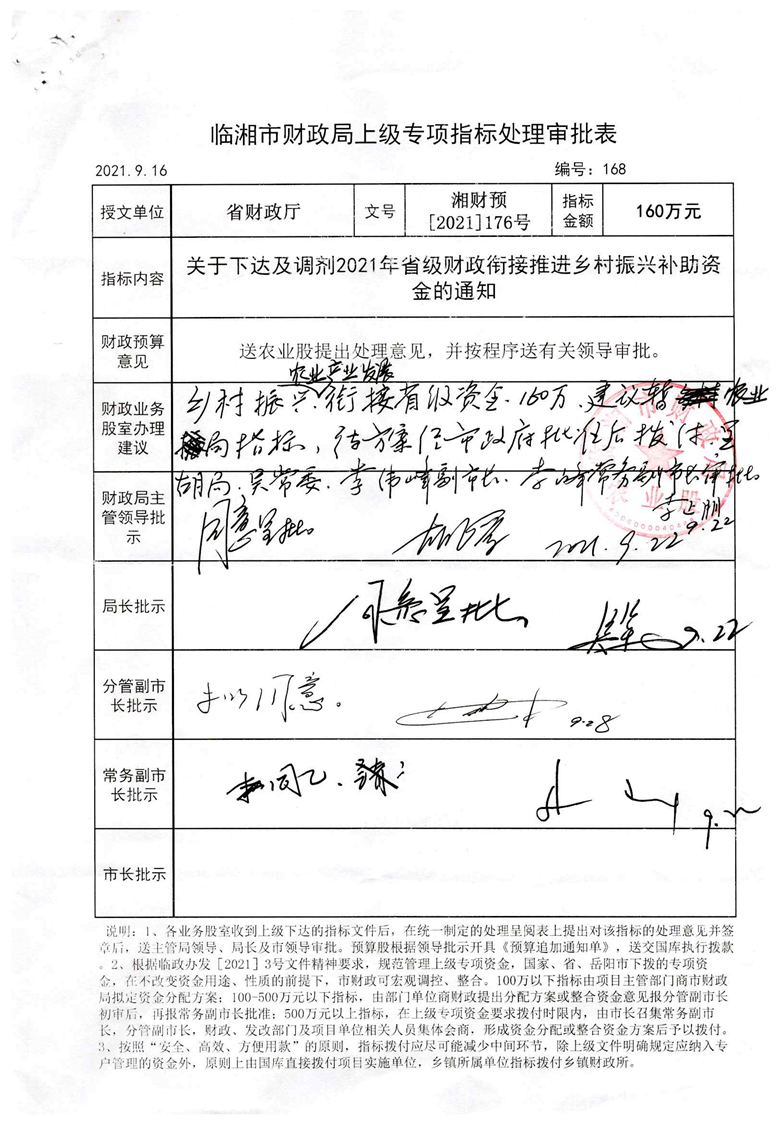 临湘市财政局上级专项指标处理审批表
2021.9.16 编号：168
授文单位 省财政厅 文号 湘财预[2021]176号 指标金额 160万元
指标内容 关于下达及调剂2021年省级财政衔接推进乡村振兴补助资
金的通知
财政预算意见 送农业股提出处理意见，并按程序送有关领导审批。
农业产业发展
财政业务股室办理建议 乡村振兴衔接省级资金160万，建议暂 农业
局指标，待方案经市政府批准后拨付。呈
胡局、吴常委、李伟峰副市长、李 峰常务副市长审批
财政局主管领导批示 同意呈批 2021.9.22 李正刚 9.22
局长批示 同意呈批 9.22
分管副市长批示 拟同意。 9.28
常务副市长批示 拟同意、 9.
市长批示
说明：1、各业务股室收到上级下达的指标文件后，在统一制定的处理呈阅表上提出对该指标的处理意见并签
章后，送主管局领导、局长及市领导审批。预算股根据领导批示开具《预算追加通知单》，送交国库执行拨款
。2、根据临政办发［2021］3号文件精神要求，规范管理上级专项资金，国家、省、岳阳市下拨的专项资
金，在不改变资金用途、性质的前提下，市财政可宏观调控、整合。100万以下指标由项目主管部门商市财政
局拟定资金分配方案；100-500万元以下指标，由部门单位商财政提出分配方案或整合资金意见报分管副市长
初审后，再报常务副市长批准；500万元以上指标，在上级专项资金要求拨付时限内，由市长召集常务副市
长，分管副市长，财政、发改部门及项目单位相关人员集体会商，形成资金分配或整合资金方案后予以拨付。
3、按照“安全、高效、方便用款”的原则，指标拨付应尽可能减少中间环节，除上级文件明确规定应纳入专
户管理的资金外，原则上由国库直接拨付项目实施单位，乡镇所属单位指标拨付乡镇财政所。